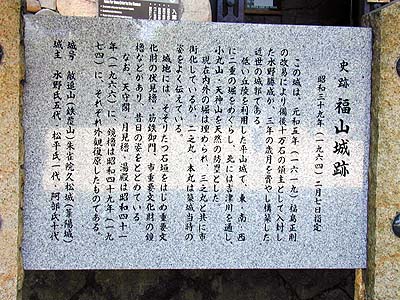 史跡 福山城跡
昭和三十九年(一九六四)二月七日指定
この城は、元和五年(一六一九)福島正則
の改易により備後十万石の領主として入封し
た水野勝成が、三年の歳月を費やし構築した
近世の城郭である。
低い丘陵を利用した平山城で、東、南、西
に二重の堀をめぐらし、北には吉津川を通し、
小丸山、天神山を天然の防塁とした。
現在内外の堀は埋められ、三之丸と共に市
街化しているが、二之丸、本丸は築城当時の
姿をよく伝えている。
城地には、そそりたつ石垣をはじめ重要文
化財の伏見櫓、筋鉄御門、市重要文化財の鐘
櫓などがあり、昔日の姿をとどめている。
なお、天守閣、月見櫓、湯殿は昭和四十一
年(一九六六)に、鏡櫓は昭和四十九年(一九
七四)に、それぞれ外観復原したものである。
城号 敵追山(鉄覆山)朱雀院久松城(葦陽城)
城主 水野氏五代、松平氏一代、阿部氏十代